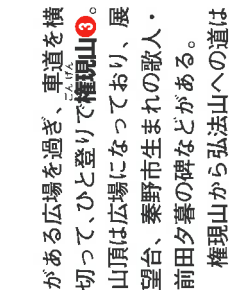 がある広場を過ぎ、車道を横
切って、ひと登りで権現山❸。
ごんげん
山頂は広場になっており、展
望台、秦野市生まれの歌人・
前田夕暮の碑などがある。
権現山から弘法山への道は